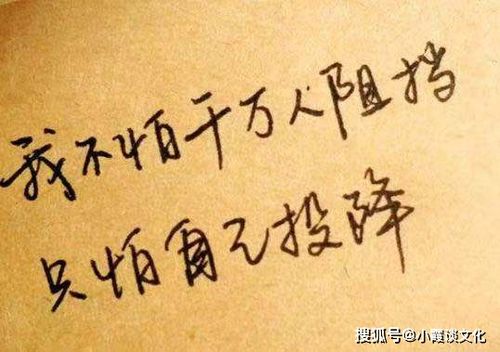 我不怕千万人阻挡
只怕自己投降
搜狐号@小霞谈文化